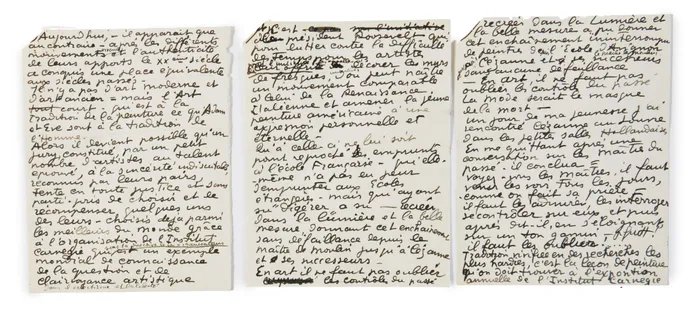 Aujourd'hui, - il apparaît que
au contraire - après les différents
mouvements et l'authenticité
de leurs apports le XXme siècle
a conquis une place équivalente
aux siècles passés
Il n'y a pas d'art moderne et
d'art ancien - mais l'Art
tout court - qui est à la
tradition de la peinture ce qu'Adam
et Eve sont à la tradition de
l'homme
Alors il devient possible qu'un
jury, constitué par un petit
nombre d'artistes au talent
éprouvé, à la sincérité indiscutable
reconnus par leurs pairs,
tente en toute justice et sans
parti-pris de choisir et de
récompenser quelques uns
des leurs - choisis déjà parmi
les meilleurs du monde grâce
à l'organisation de l'Institut
Carnegie qui est un exemple
mondial de connaissance
de la question et de
clairvoyance artistique
C'est
président Roosevelt qui
pour lutter contre la difficulté
de
décorer les murs
de fresques, d'où peut naître
un mouvement comparable
à celui de la Renaissance
Italienne et amener la jeune
peinture américaine à une
expression personnelle et
éternelle
Qu'à celle-ci ne lui soit
point reproché les emprunts
à l'école Française - qui elle-
même n'a pas eu peur
d'emprunter aux Ecoles
étrangères - mais qui ayant
su digérer a su recréer
dans la lumière et la belle
mesure donnant cet enchaînement
sans défaillance depuis le
maître de Moulin jusqu'à Cézanne
et ses successeurs
En art il ne faut pas oublier
les contrôles du passé
recréer dans la Lumière et
la belle mesure a pu donner
cet enchaînement ininterrompu
de peintres de l'Ecole d'Avignon
à Cézanne et ses successeurs
sans tant de feuillance
En art il ne faut pas
oublier les contrôles du passé
La mode serait le masque
de la mort -
un jour de ma jeunesse j'ai
rencontré Cézanne au Louvre
dans les petites salles Hollandaises
En me quittant après une
conversation sur les maîtres du
passé il conclua =
Voyez-vous les maîtres, il faut
venir les voir tous les jours,
comme on fait sa prière =
il faut les
se contrôler sur eux et puis
après dit-il, en s'éloignant
sur un ton
il faut les oublier.
Tradition vivifiée en des recherches les
plus hardies, c'est la leçon de peinture
qu'on doit trouver à l'exposition
annuelle de l'Institut Carnegie